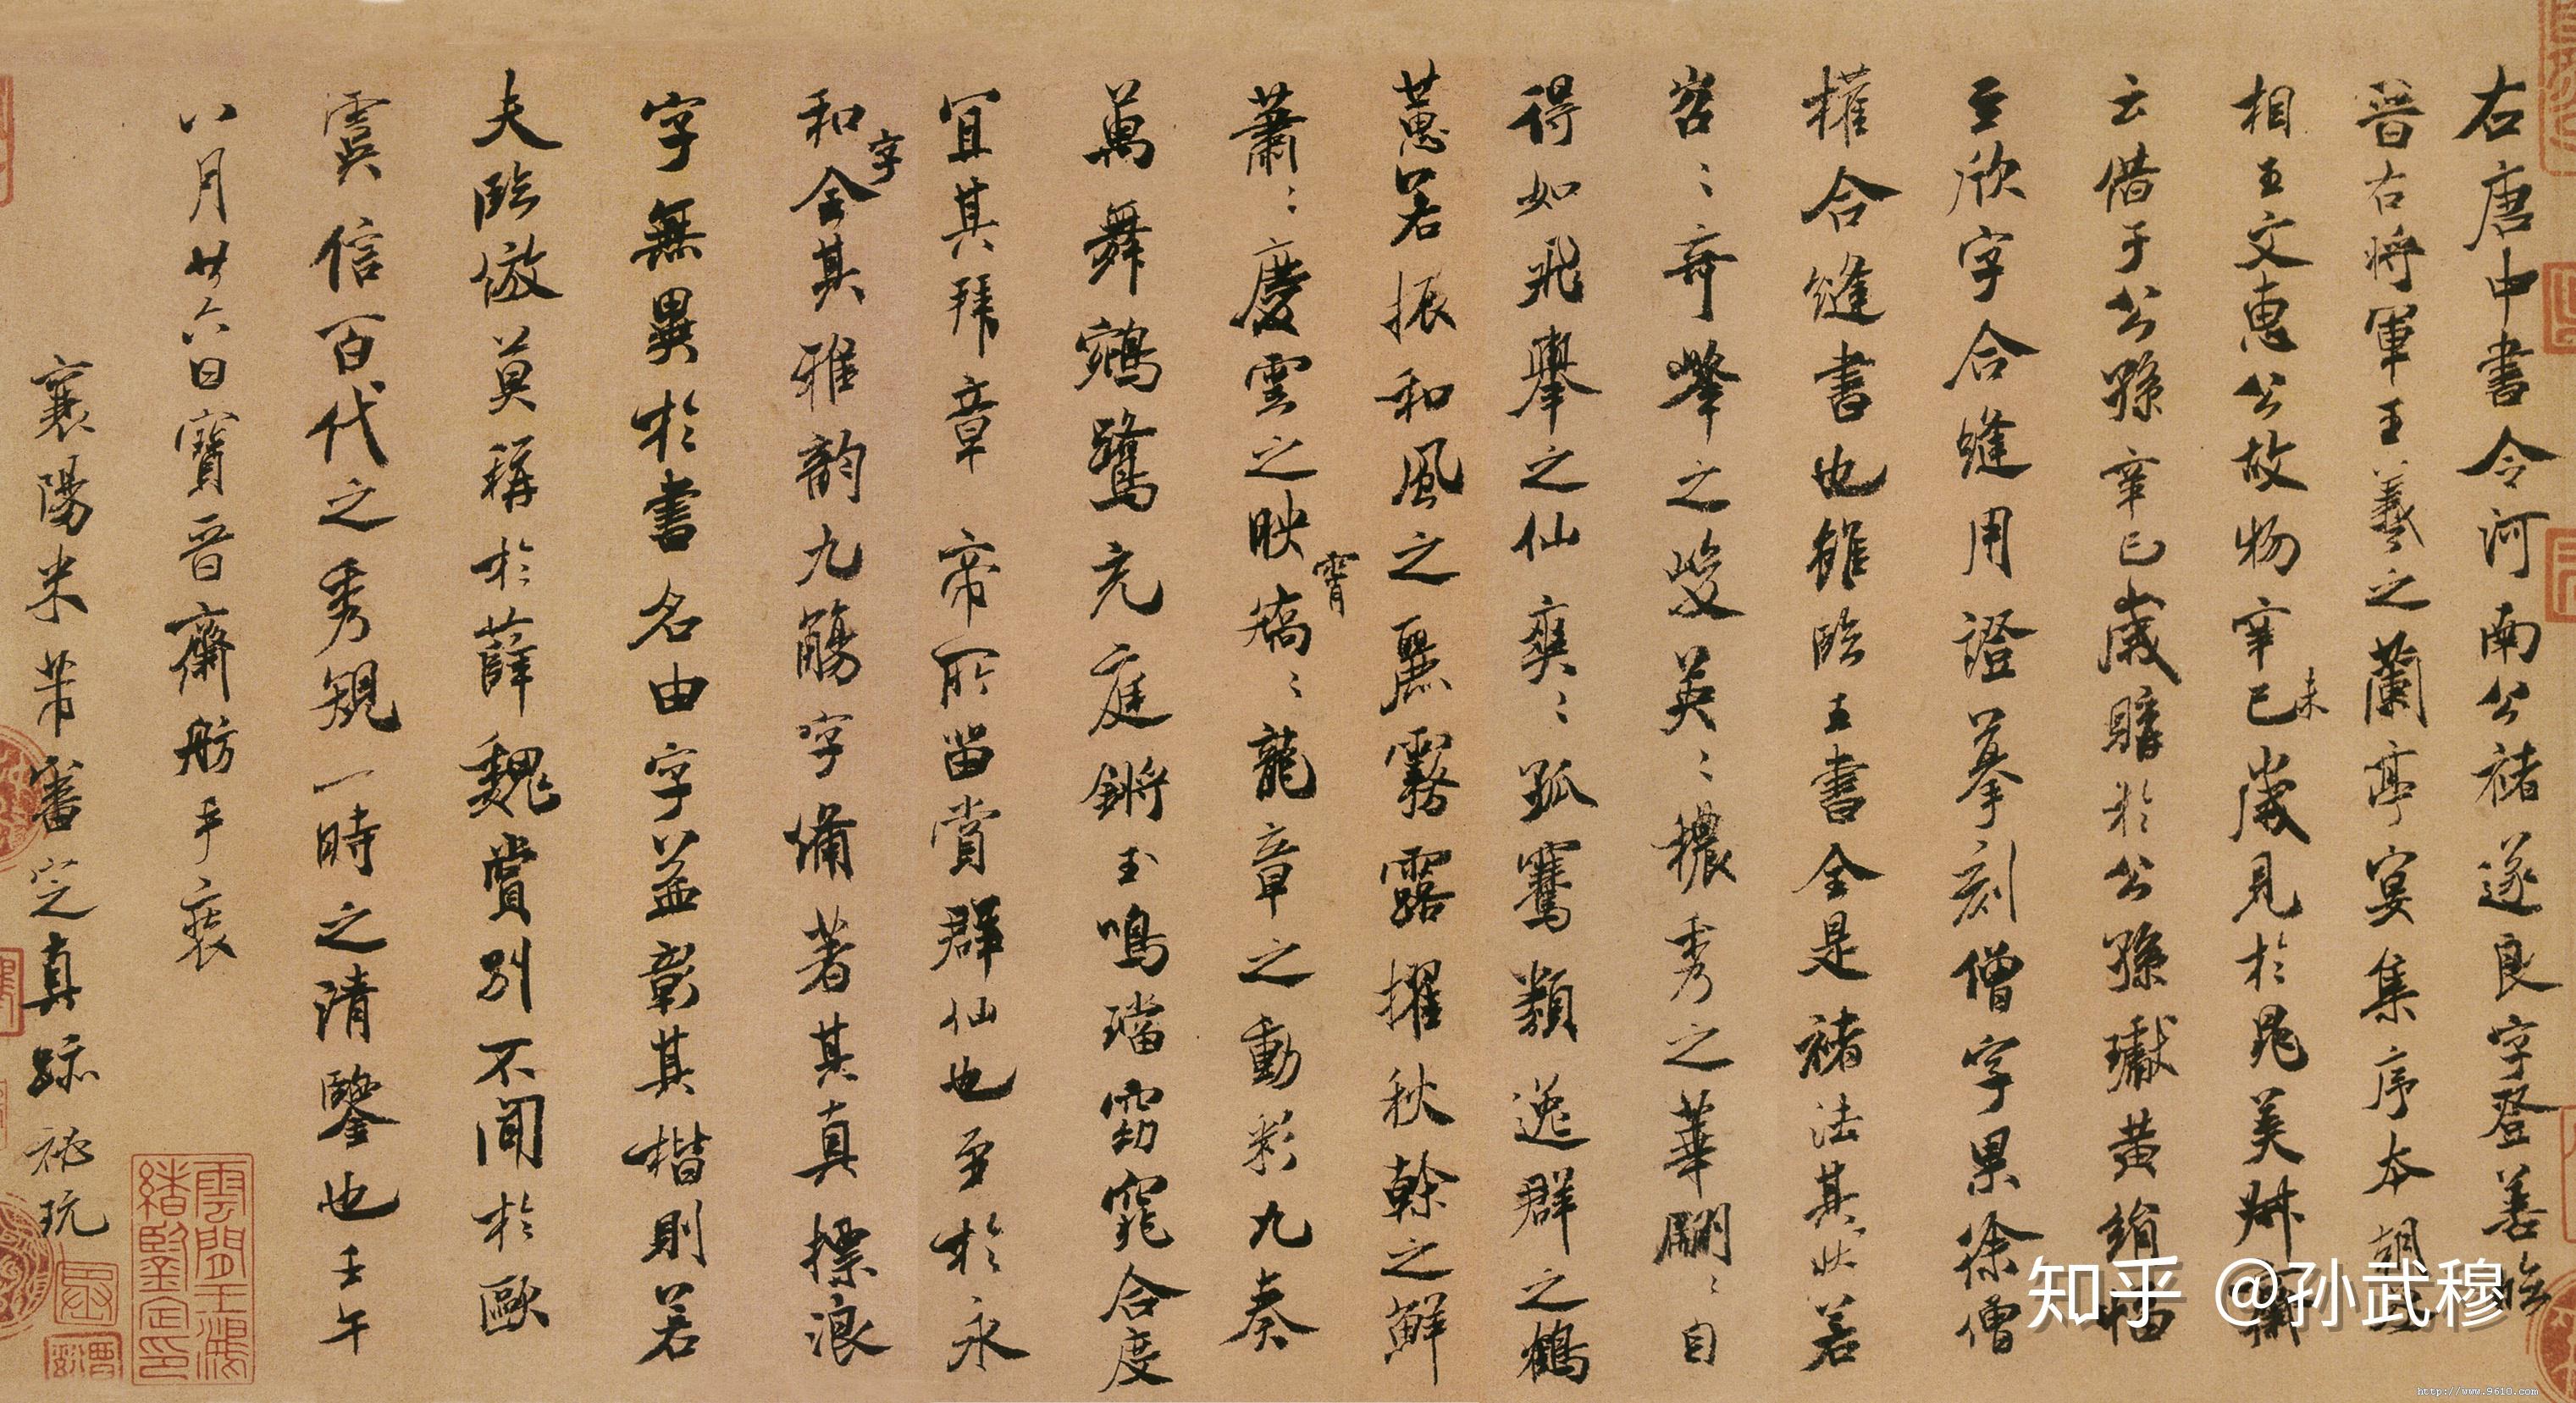 右唐中書令河南公褚遂良字登善臨
晉右將軍王羲之蘭亭宴集序本朝丞
相王文惠公故物辛巳歲見於晁美叔齋
未
云借于公孫辛巳歲購於公孫瓛黃絹幅
至欣字合縫用證摹刻僧字果徐僧
權合縫書也雖臨王書全是褚法其狀若
岩〻奇峰之峻英〻穠秀之華翩〻自
得如飛舉之仙爽〻孤騫類逸群之鶴
蕙若振和風之麗霧露擢秋幹之鮮
蕭〻慶雲之映矯〻龍章之動彩九奏
霄
萬舞鵷鷺充庭鏘玉鳴璫窈窕合度
宜其拜章帝所留賞群仙也至於永
和全其雅韵九觴字備著其真摽浪
字
字無異於書名由字益彰其楷則若
夫臨倣莫稱於薛魏賞別不聞於歐
虞信百代之秀規一時之清鑒也壬午
八月廿六日寶晉齋舫手裝
襄陽米芾審定真跡祕玩
雲間王鴻
緒鑒定印
知乎 @孙武穆
http://www.9610.com